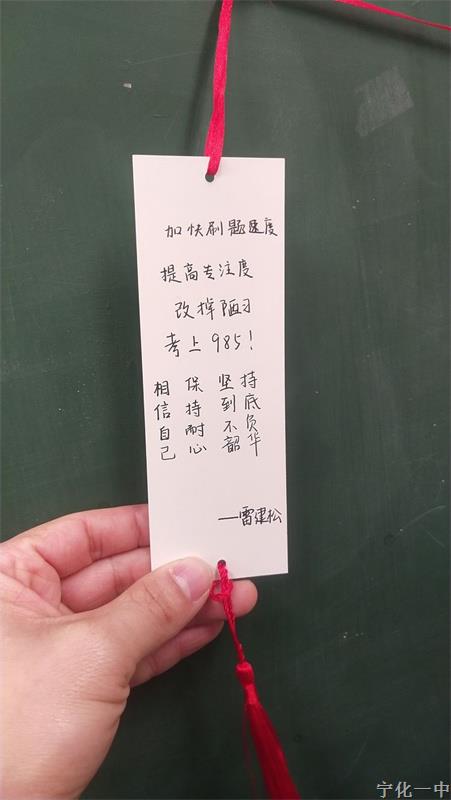 加快刷题速度
提高专注度
改掉陋习
考上985！
相信自己
保持耐心
坚持
到底
不负
韶华
——雷建松
宁化一中